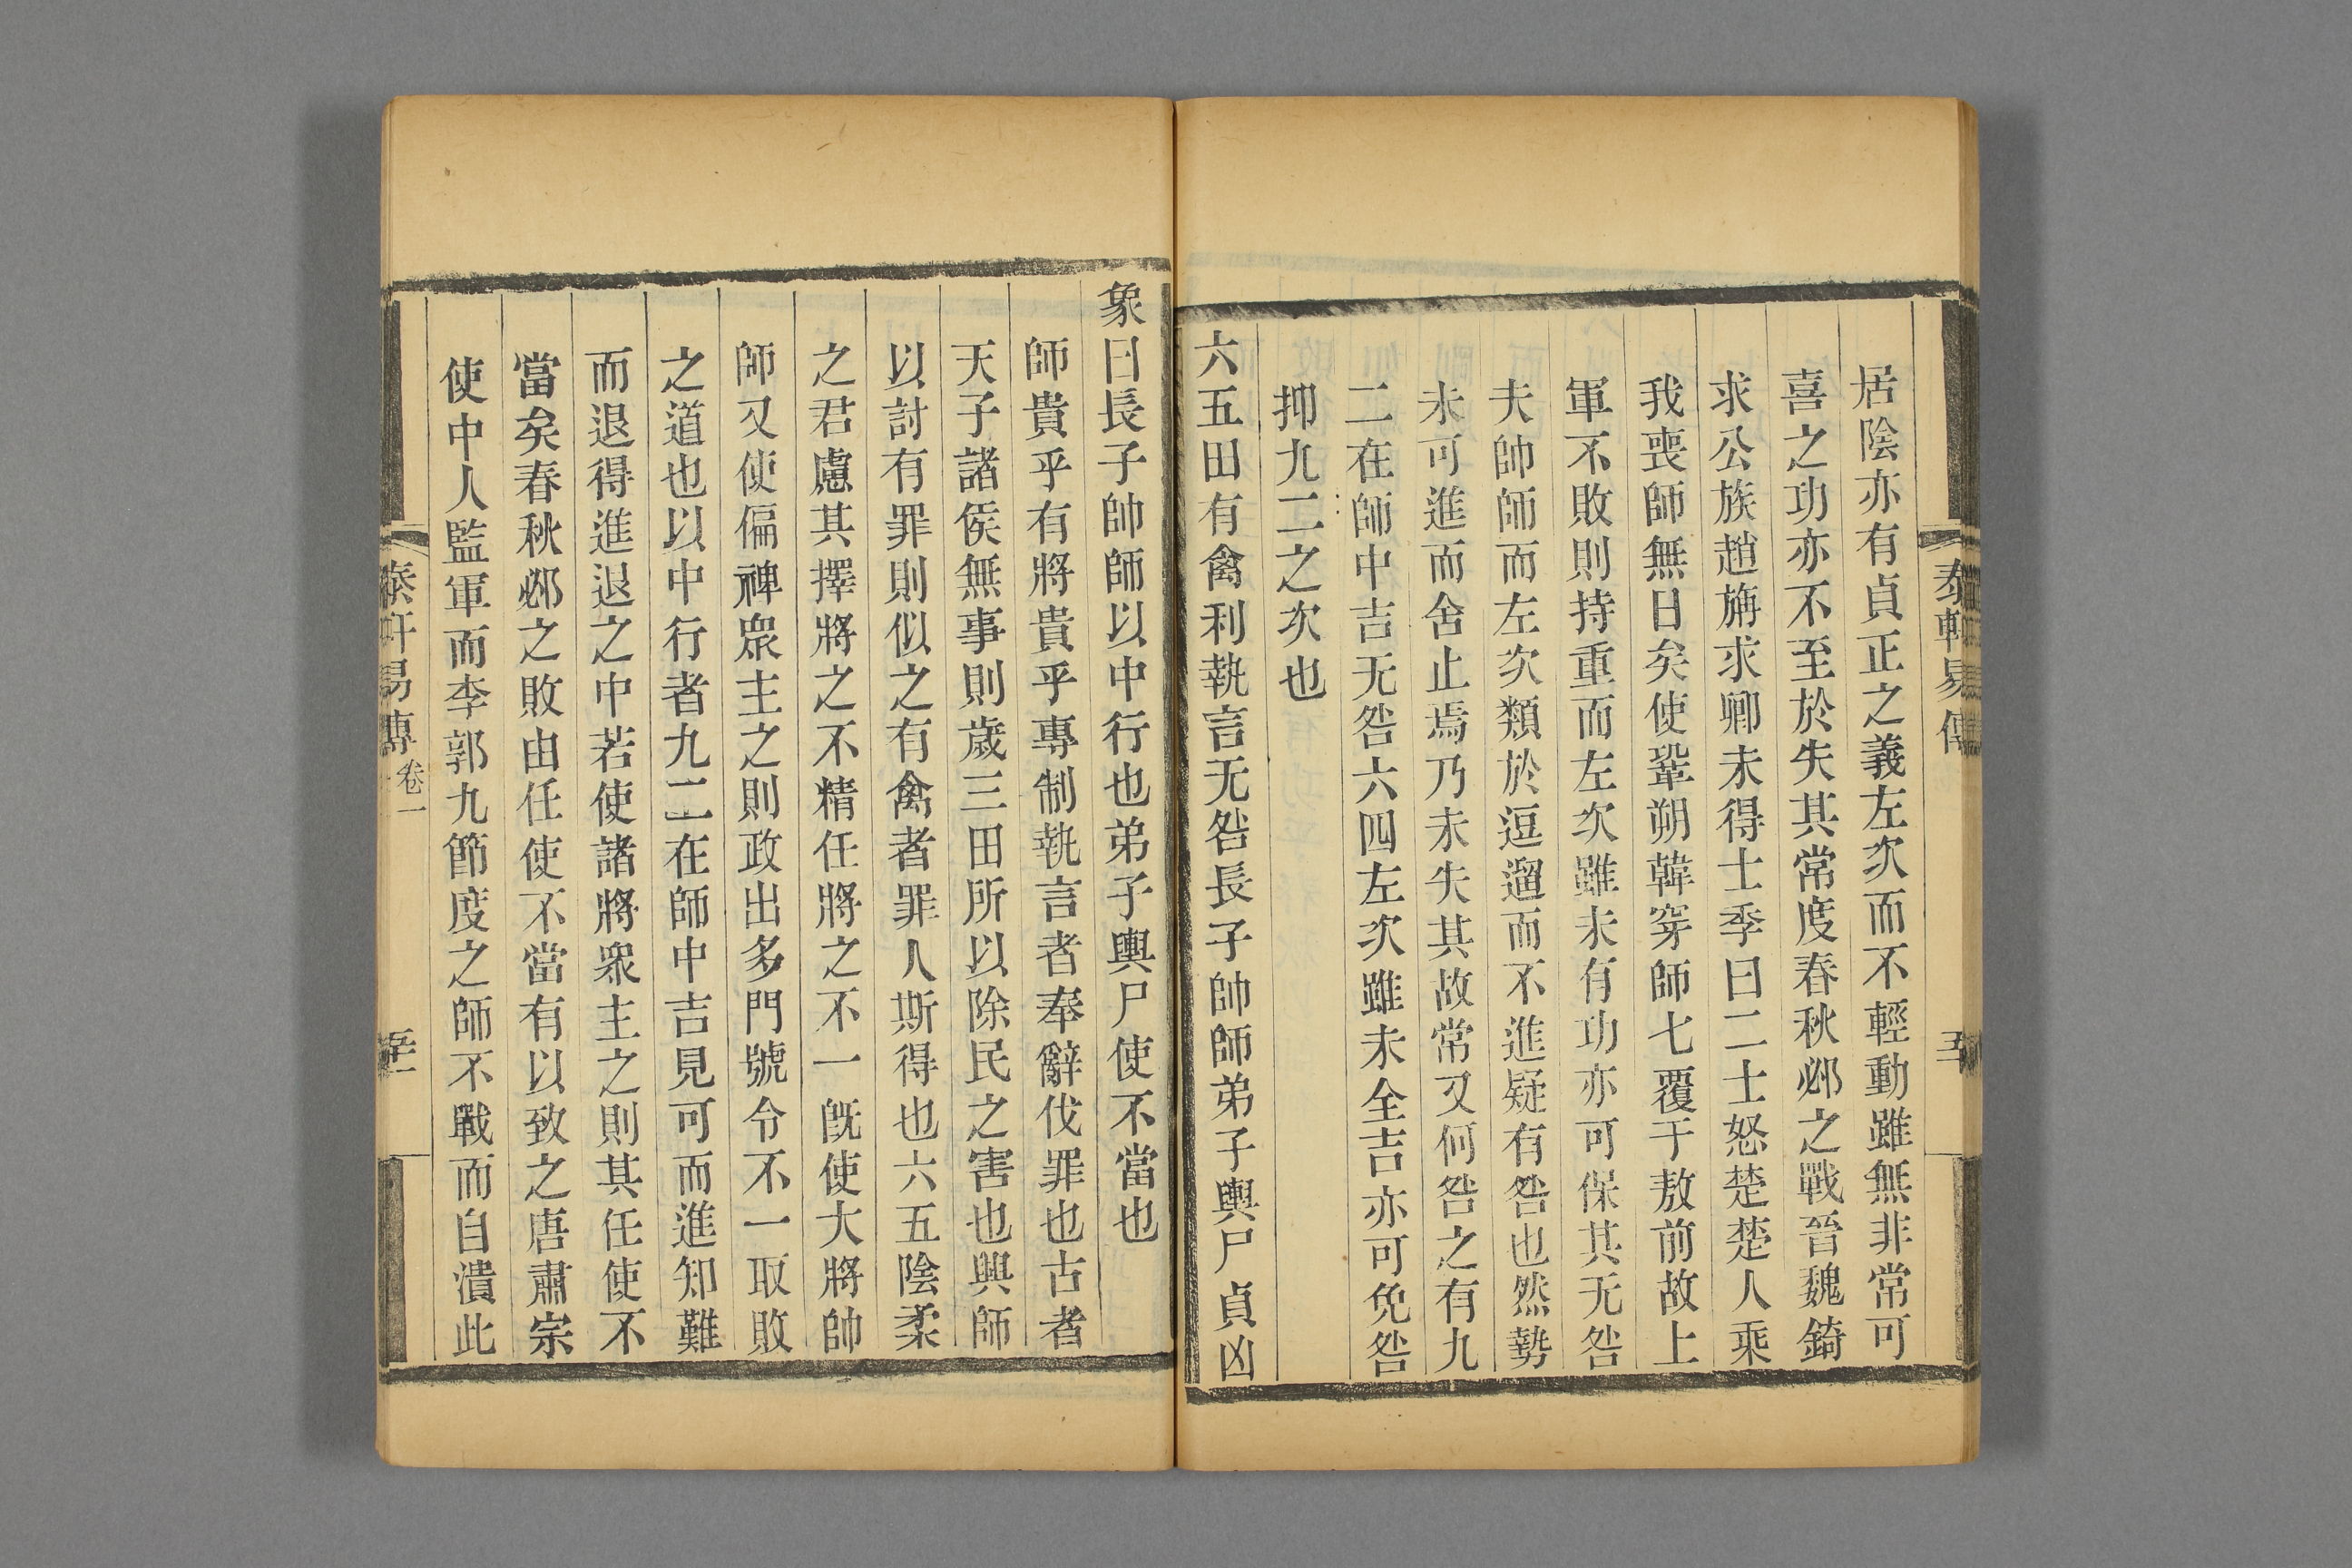 泰軒易傳
五
居陰亦有貞正之義左次而不輕動雖無非常可
喜之功亦不至於失其常度春秋邲之戰晉魏錡
求公族趙旃求卿未得士季曰二士怒楚楚人乘
我喪師無日矣使鞏朔韓穿師七覆于敖前故上
軍不敗則持重而左次雖未有功亦可保其无咎
夫帥師而左次類於逗遛而不進疑有咎也然勢
未可進而舍止焉乃未失其故常又何咎之有九
二在師中吉无咎六四左次雖未全吉亦可免咎
抑九二之次也
六五田有禽利執言无咎長子帥師弟子輿尸貞凶
象曰長子帥師以中行也弟子輿尸使不當也
師貴乎有將貴乎專制執言者奉辭伐罪也古者
天子諸侯無事則歲三田所以除民之害也興師
以討有罪則似之有禽者罪人斯得也六五陰柔
之君慮其擇將之不精任將之不一旣使大將帥
師又使偏裨衆主之則政出多門號令不一取敗
之道也以中行者九二在師中吉見可而進知難
而退得進退之中若使諸將衆主之則其任使不
當矣春秋邲之敗由任使不當有以致之唐肅宗
使中人監軍而李郭九節度之師不戰而自潰此
泰軒易傳 卷一